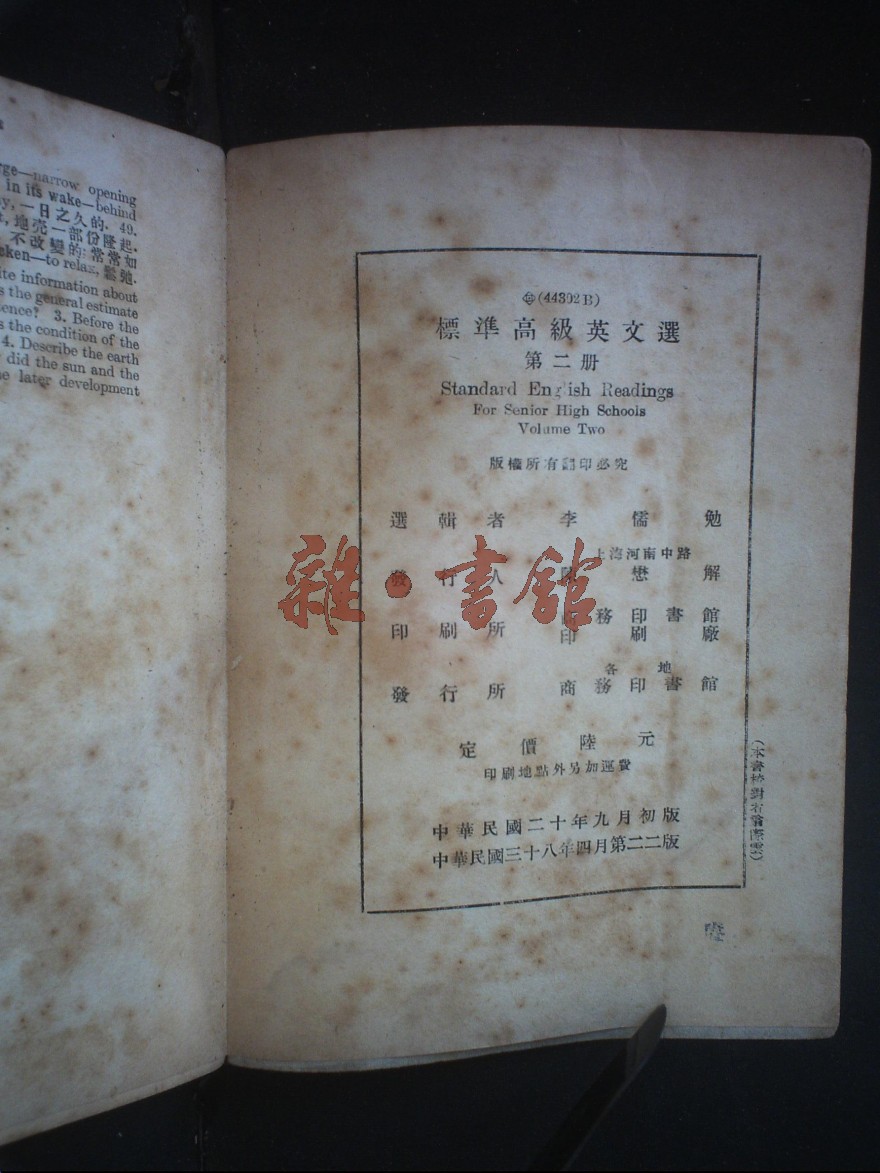 rge—narrow opening
in its wake—behind
y, 一日之久的. 49.
t, 地壳一部份隆起.
不改變的; 常常如
cken—to relax, 鬆弛.
ite information about
s the general estimate
ence? 3. Before the
s the condition of the
4. Describe the earth
did the sun and the
e later development
(44302B)
標準高級英文選
第二册
Standard English Readings
For Senior High Schools
Volume Two
版權所有翻印必究
選輯者 李儒勉
上海河南中路
發行人 陳懋解
印刷所 商務印書館
印刷廠
各地
發行所 商務印書館
定價陸元
印刷地點外另加運費
中華民國二十年九月初版
中華民國三十八年四月第二二版
(本書校對者
雜·書館